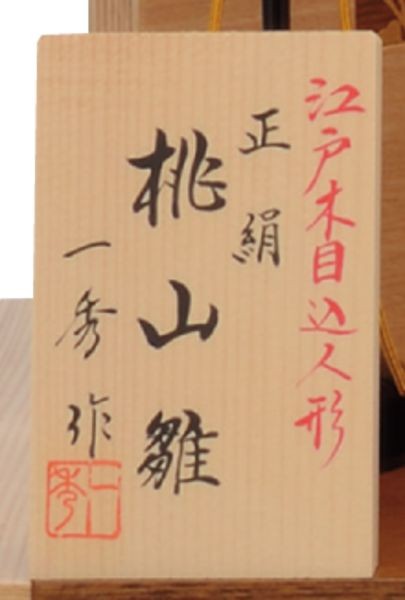 江戸木目込人形
正絹
桃山雛
一秀作
一秀